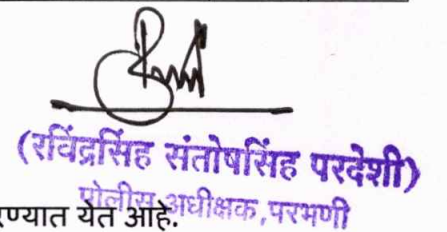 (रविंद्रसिंह संतोषसिंह परदेशी)
पोलीस अधीक्षक,परभणी
रण्यात येत आहे.